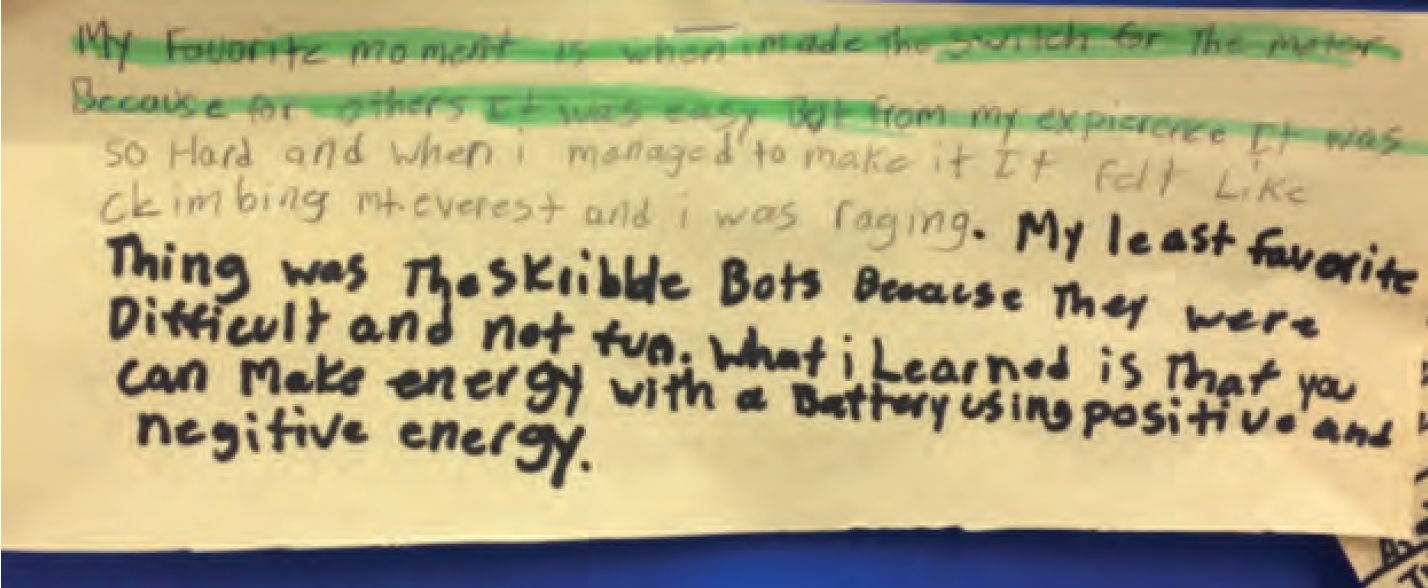 My Favorite moment is when i made the switch for The motor
Because for others It was easy But from my expicrence It was
so Hard and when i managed to make it It felt Like
ckimbing mt.everest and i was raging. My least favorite
Thing was The Skribble Bots Because They were
Difficult and not fun. What i Learned is That you
can Make energy with a Battery using positive and
negitive energy.